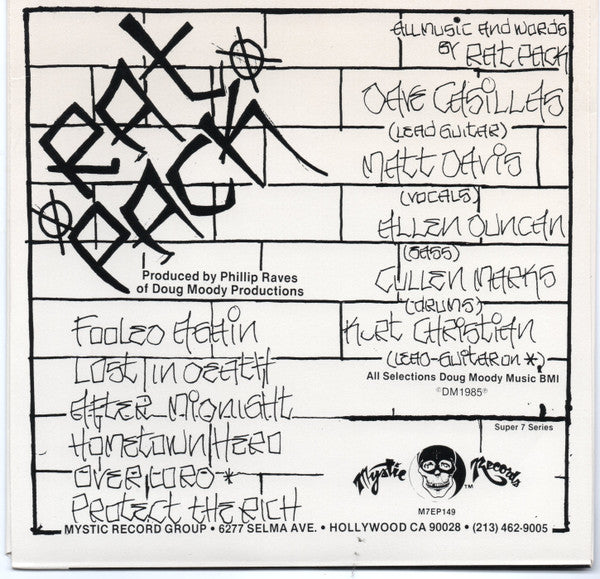 RAT
PACK
ALL MUSIC AND WORDS
BY RAT PACK
DAVE CASILLAS
(LEAD GUITAR)
MATT DAVIS
(VOCALS)
ALLEN DUNCAN
(BASS)
CULLEN MARKS
(DRUMS)
KURT CHRISTIAN
(LEAD-GUITAR ON *)
All Selections Doug Moody Music BMI
©DM1985℗
Produced by Phillip Raves
of Doug Moody Productions
FOOLED AGAIN
LOST IN DEATH
AFTER MIDNIGHT
HOMETOWN HERO
OVERLORD *
PROTECT THE RICH
Super 7 Series
Mystic Records
TM
M7EP149
MYSTIC RECORD GROUP • 6277 SELMA AVE. • HOLLYWOOD CA 90028 • (213) 462-9005